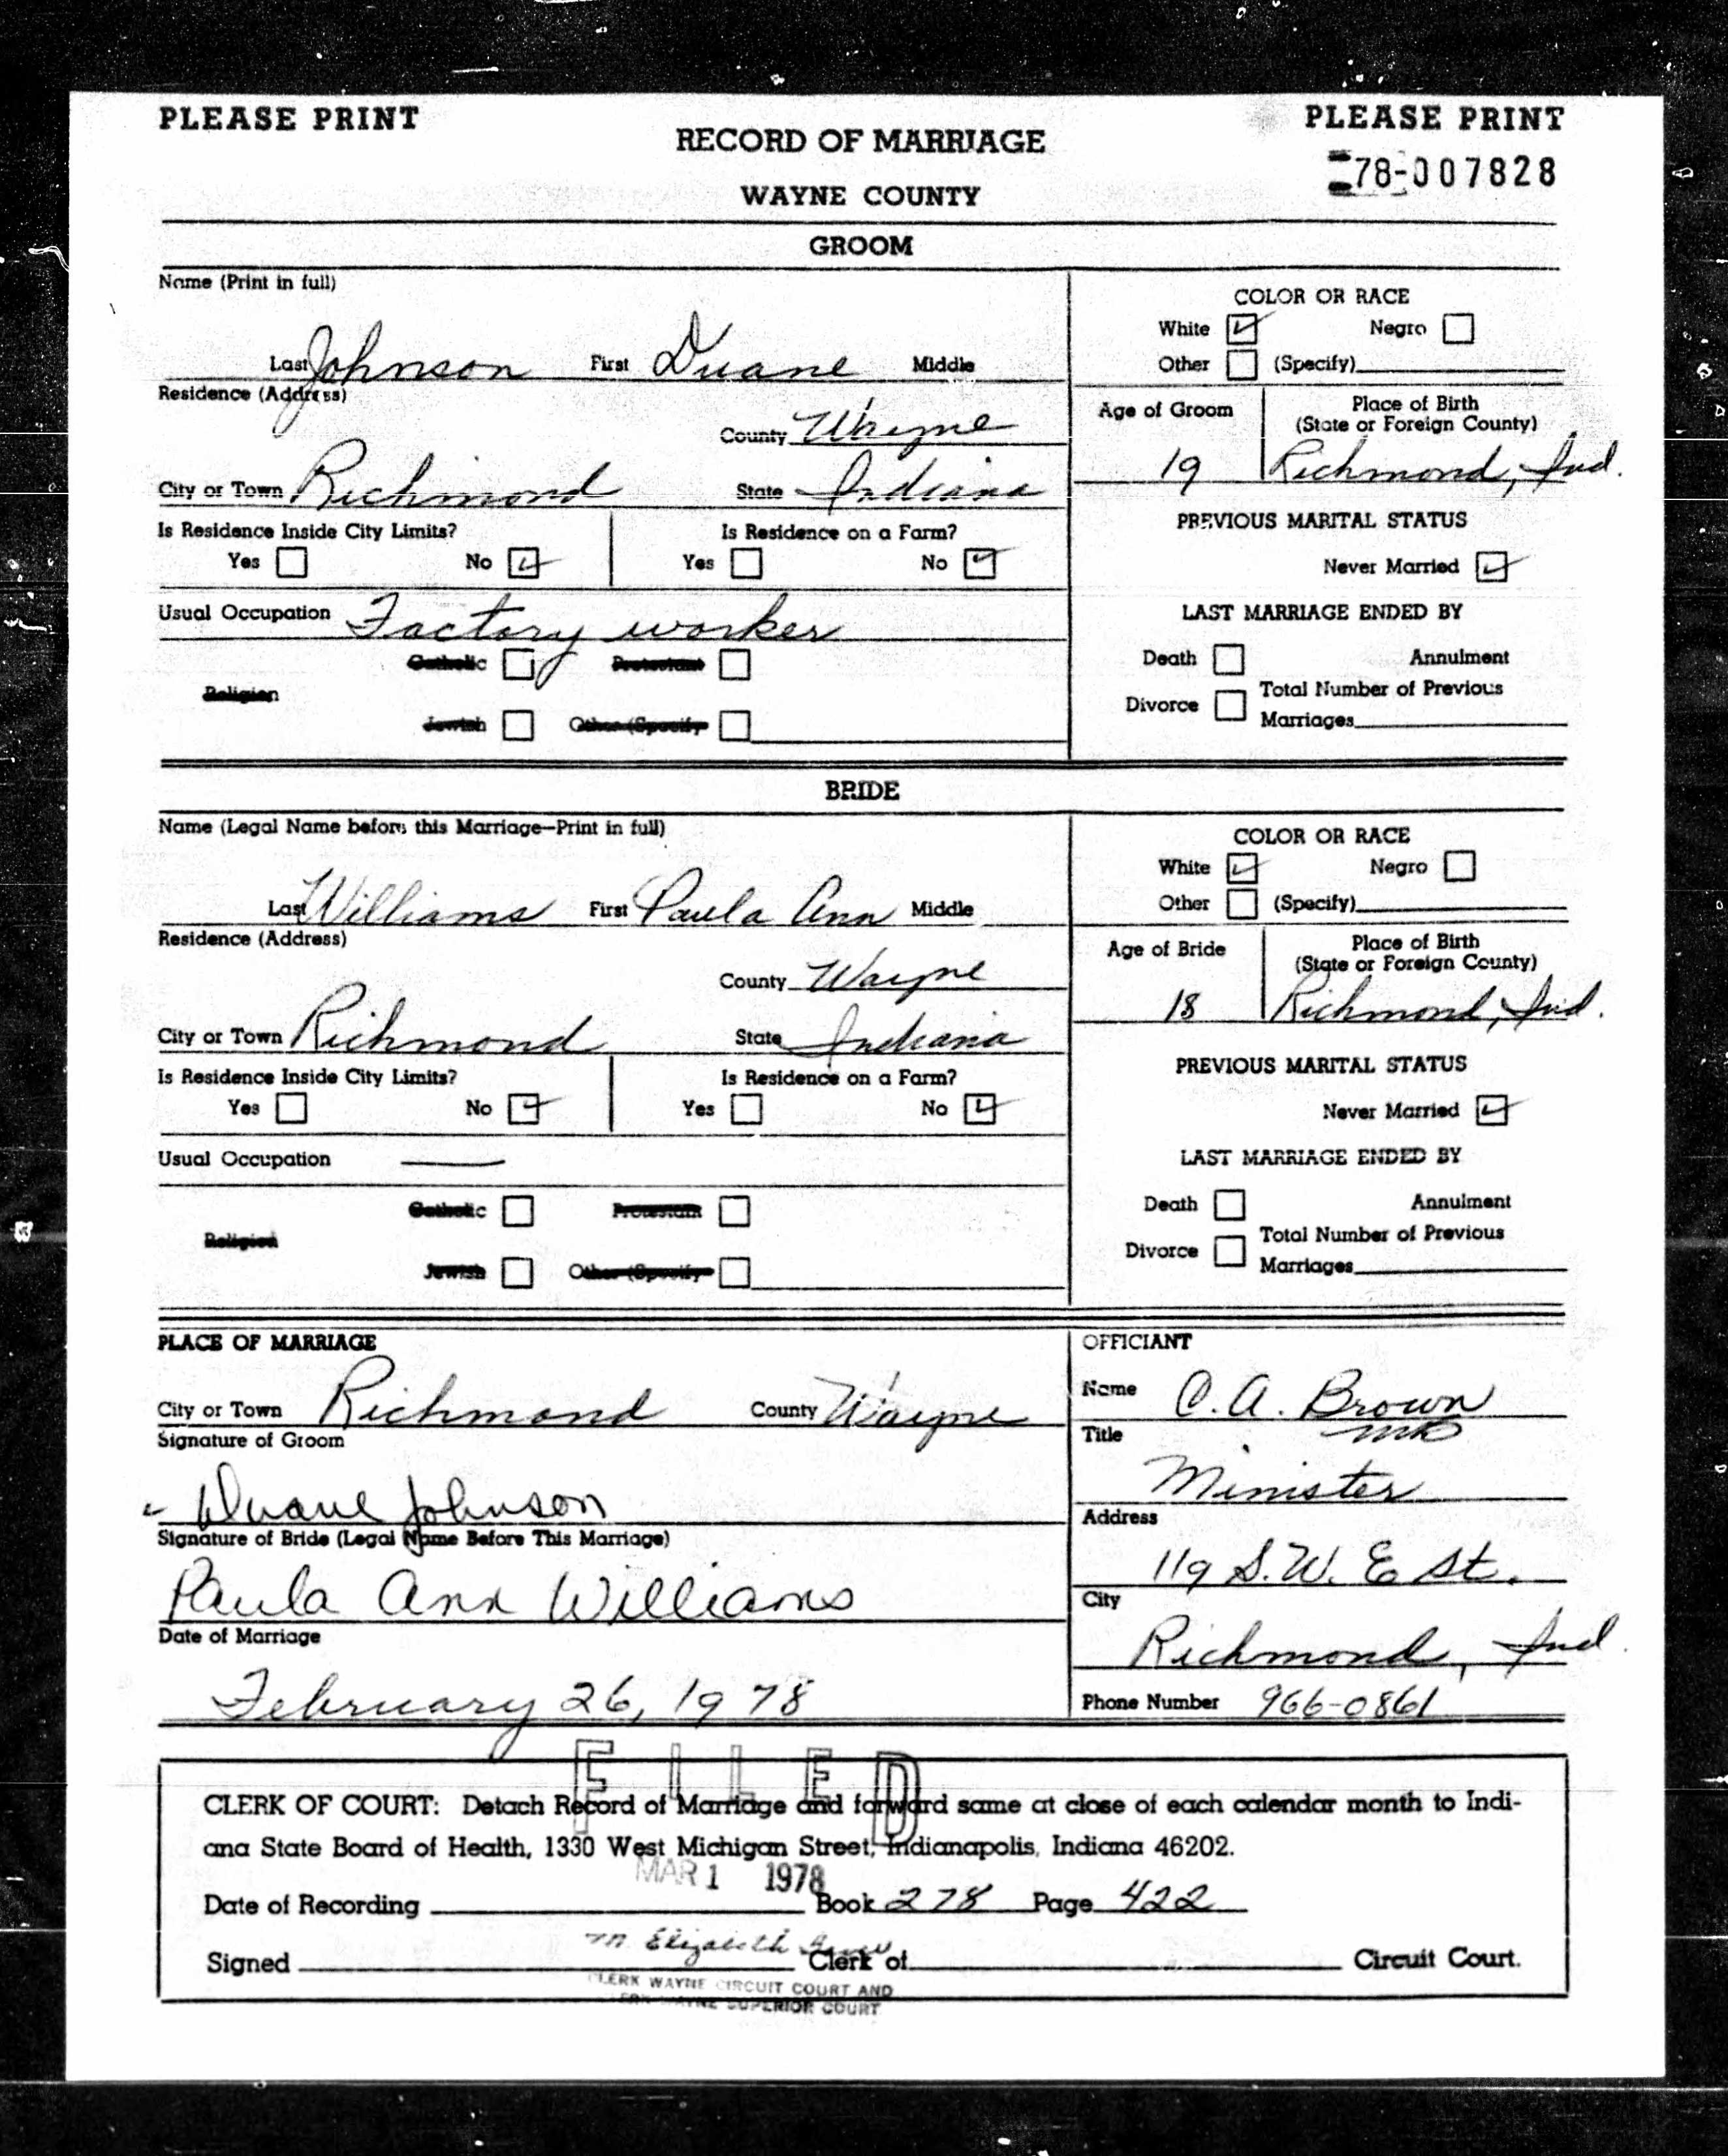 PLEASE PRINT
PLEASE PRINT
RECORD OF MARRIAGE
78-007828
WAYNE COUNTY
GROOM
Name (Print in full)
Last Johnson First Duane Middle
COLOR OR RACE
White Negro
Other (Specify)
Residence (Address)
County Wayne
City or Town Richmond State Indiana
Age of Groom
19
Place of Birth
(State or Foreign County)
Richmond, Ind.
Is Residence Inside City Limits?
Yes No
Is Residence on a Farm?
Yes No
PREVIOUS MARITAL STATUS
Never Married
Usual Occupation Factory worker
LAST MARRIAGE ENDED BY
Catholic Protestant
Religion
Jewish Other (Specify
Death Annulment
Divorce
Total Number of Previous
Marriages
BRIDE
Name (Legal Name before this Marriage—Print in full)
Last Williams First Paula Ann Middle
COLOR OR RACE
White Negro
Other (Specify)
Residence (Address)
County Wayne
City or Town Richmond State Indiana
Age of Bride
18
Place of Birth
(State or Foreign County)
Richmond, Ind.
Is Residence Inside City Limits?
Yes No
Is Residence on a Farm?
Yes No
PREVIOUS MARITAL STATUS
Never Married
Usual Occupation —
LAST MARRIAGE ENDED BY
Catholic Protestant
Religion
Jewish Other (Specify
Death Annulment
Divorce
Total Number of Previous
Marriages
PLACE OF MARRIAGE
City or Town Richmond County Wayne
Signature of Groom
Duane Johnson
Signature of Bride (Legal Name Before This Marriage)
Paula Ann Williams
Date of Marriage
February 26, 1978
OFFICIANT
Name C. A. Brown
Title
Minister
Address
119 S.W. E St.
City
Richmond, Ind.
Phone Number 966-0861
FILED
CLERK OF COURT: Detach Record of Marriage and forward same at close of each calendar month to Indi-
ana State Board of Health, 1330 West Michigan Street, Indianapolis, Indiana 46202.
MAR 1 1978
Date of Recording Book 278 Page 422
M. Elizabeth
Signed Clerk of Circuit Court.
CLERK WAYNE CIRCUIT COURT AND
WAYNE SUPERIOR COURT